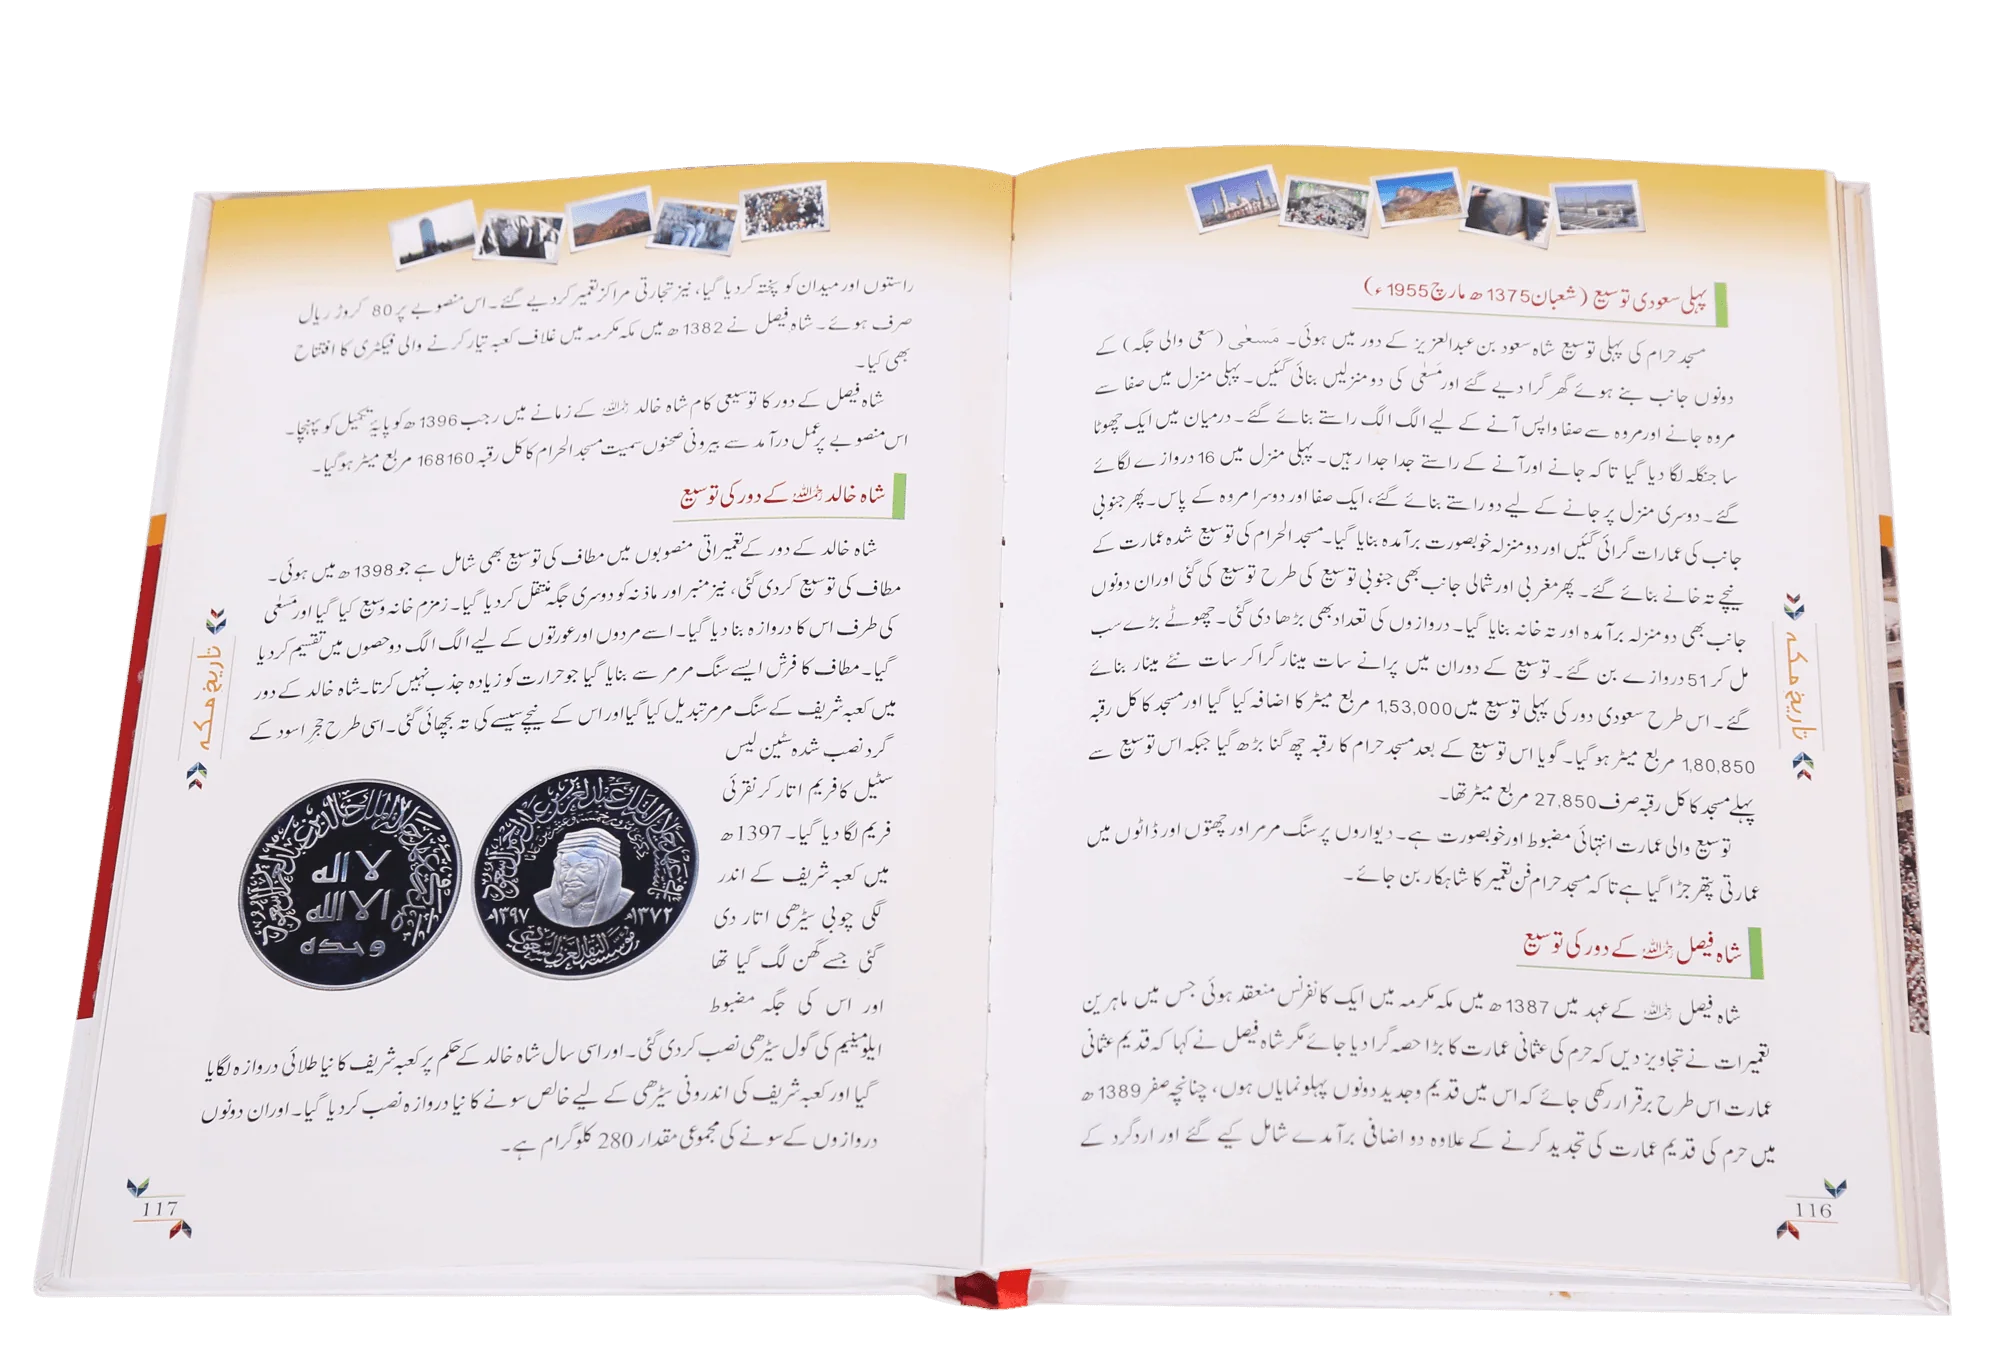 پہلی سعودی توسیع (شعبان 1375ھ مارچ 1955ء)
مسجد حرام کی پہلی توسیع شاہ سعود بن عبدالعزیز کے دور میں ہوئی۔ مَسعٰی (سعی والی جگہ) کے
دونوں جانب بنے ہوئے گھر گرا دیے گئے اور مَسعٰی کی دو منزلیں بنائی گئیں۔ پہلی منزل میں صفا سے
مروہ جانے اور مروہ سے صفا واپس آنے کے لیے الگ الگ راستے بنائے گئے۔ درمیان میں ایک چھوٹا
سا جنگلہ لگا دیا گیا تاکہ جانے اور آنے کے راستے جدا جدا رہیں۔ پہلی منزل میں 16 دروازے لگائے
گئے۔ دوسری منزل پر جانے کے لیے دو راستے بنائے گئے، ایک صفا اور دوسرا مروہ کے پاس۔ پھر جنوبی
جانب کی عمارات گرائی گئیں اور دو منزلہ خوبصورت برآمدہ بنایا گیا۔ مسجد الحرام کی توسیع شدہ عمارت کے
نیچے تہ خانے بنائے گئے۔ پھر مغربی اور شمالی جانب بھی جنوبی توسیع کی طرح توسیع کی گئی اور ان دونوں
جانب بھی دو منزلہ برآمدہ اور تہ خانہ بنایا گیا۔ دروازوں کی تعداد بھی بڑھا دی گئی۔ چھوٹے بڑے سب
مل کر 51 دروازے بن گئے۔ توسیع کے دوران میں پرانے سات مینار گرا کر سات نئے مینار بنائے
گئے۔ اس طرح سعودی دور کی پہلی توسیع میں 1,53,000 مربع میٹر کا اضافہ کیا گیا اور مسجد کا کل رقبہ
1,80,850 مربع میٹر ہو گیا۔ گویا اس توسیع کے بعد مسجد حرام کا رقبہ چھ گنا بڑھ گیا جبکہ اس توسیع سے
پہلے مسجد کا کل رقبہ صرف 27,850 مربع میٹر تھا۔
توسیع والی عمارت انتہائی مضبوط اور خوبصورت ہے۔ دیواروں پر سنگ مرمر اور چھتوں اور ڈاٹوں میں
عمارتی پتھر جڑا گیا ہے تاکہ مسجد حرام فن تعمیر کا شاہکار بن جائے۔
شاہ فیصل رحمہ اللہ کے دور کی توسیع
شاہ فیصل رحمہ اللہ کے عہد میں 1387ھ میں مکہ مکرمہ میں ایک کانفرنس منعقد ہوئی جس میں ماہرین
تعمیرات نے تجاویز دیں کہ حرم کی عثمانی عمارت کا بڑا حصہ گرا دیا جائے مگر شاہ فیصل نے کہا کہ قدیم عثمانی
عمارت اس طرح برقرار رکھی جائے کہ اس میں قدیم و جدید دونوں پہلو نمایاں ہوں، چنانچہ صفر 1389ھ
میں حرم کی قدیم عمارت کی تجدید کرنے کے علاوہ دو اضافی برآمدے شامل کیے گئے اور اردگرد کے
تاریخ مکہ
116
راستوں اور میدان کو پختہ کر دیا گیا، نیز تجارتی مراکز تعمیر کر دیے گئے۔ اس منصوبے پر 80 کروڑ ریال
صرف ہوئے۔ شاہ فیصل نے 1382ھ میں مکہ مکرمہ میں غلاف کعبہ تیار کرنے والی فیکٹری کا افتتاح
بھی کیا۔
شاہ فیصل کے دور کا توسیعی کام شاہ خالد رحمہ اللہ کے زمانے میں رجب 1396ھ کو پایۂ تکمیل کو پہنچا۔
اس منصوبے پر عمل درآمد سے بیرونی صحنوں سمیت مسجد الحرام کا کل رقبہ 168160 مربع میٹر ہو گیا۔
شاہ خالد رحمہ اللہ کے دور کی توسیع
شاہ خالد کے دور کے تعمیراتی منصوبوں میں مطاف کی توسیع بھی شامل ہے جو 1398ھ میں ہوئی۔
مطاف کی توسیع کر دی گئی، نیز منبر اور ماذنہ کو دوسری جگہ منتقل کر دیا گیا۔ زمزم خانہ وسیع کیا گیا اور مَسعٰی
کی طرف اس کا دروازہ بنا دیا گیا۔ اسے مردوں اور عورتوں کے لیے الگ الگ دو حصوں میں تقسیم کر دیا
گیا۔ مطاف کا فرش ایسے سنگ مرمر سے بنایا گیا جو حرارت کو زیادہ جذب نہیں کرتا۔ شاہ خالد کے دور
میں کعبہ شریف کے سنگ مرمر تبدیل کیا گیا اور اس کے نیچے سیسے کی تہ بچھائی گئی۔ اسی طرح حجرِ اسود کے
گرد نصب شدہ سٹین لیس
سٹیل کا فریم اتار کر نقرئی
فریم لگا دیا گیا۔ 1397ھ
میں کعبہ شریف کے اندر
لگی چوبی سیڑھی اتار دی
گئی جسے گھن لگ گیا تھا
اور اس کی جگہ مضبوط
ایلومینیم کی گول سیڑھی نصب کر دی گئی۔ اور اسی سال شاہ خالد کے حکم پر کعبہ شریف کا نیا طلائی دروازہ لگایا
گیا اور کعبہ شریف کی اندرونی سیڑھی کے لیے خالص سونے کا نیا دروازہ نصب کر دیا گیا۔ اور ان دونوں
دروازوں کے سونے کی مجموعی مقدار 280 کلوگرام ہے۔
١٣٩٧م
١٣٧٢م
مؤسسة النقد العربي السعودي
لا اله
الا الله
وحده
تاریخ مکہ
117